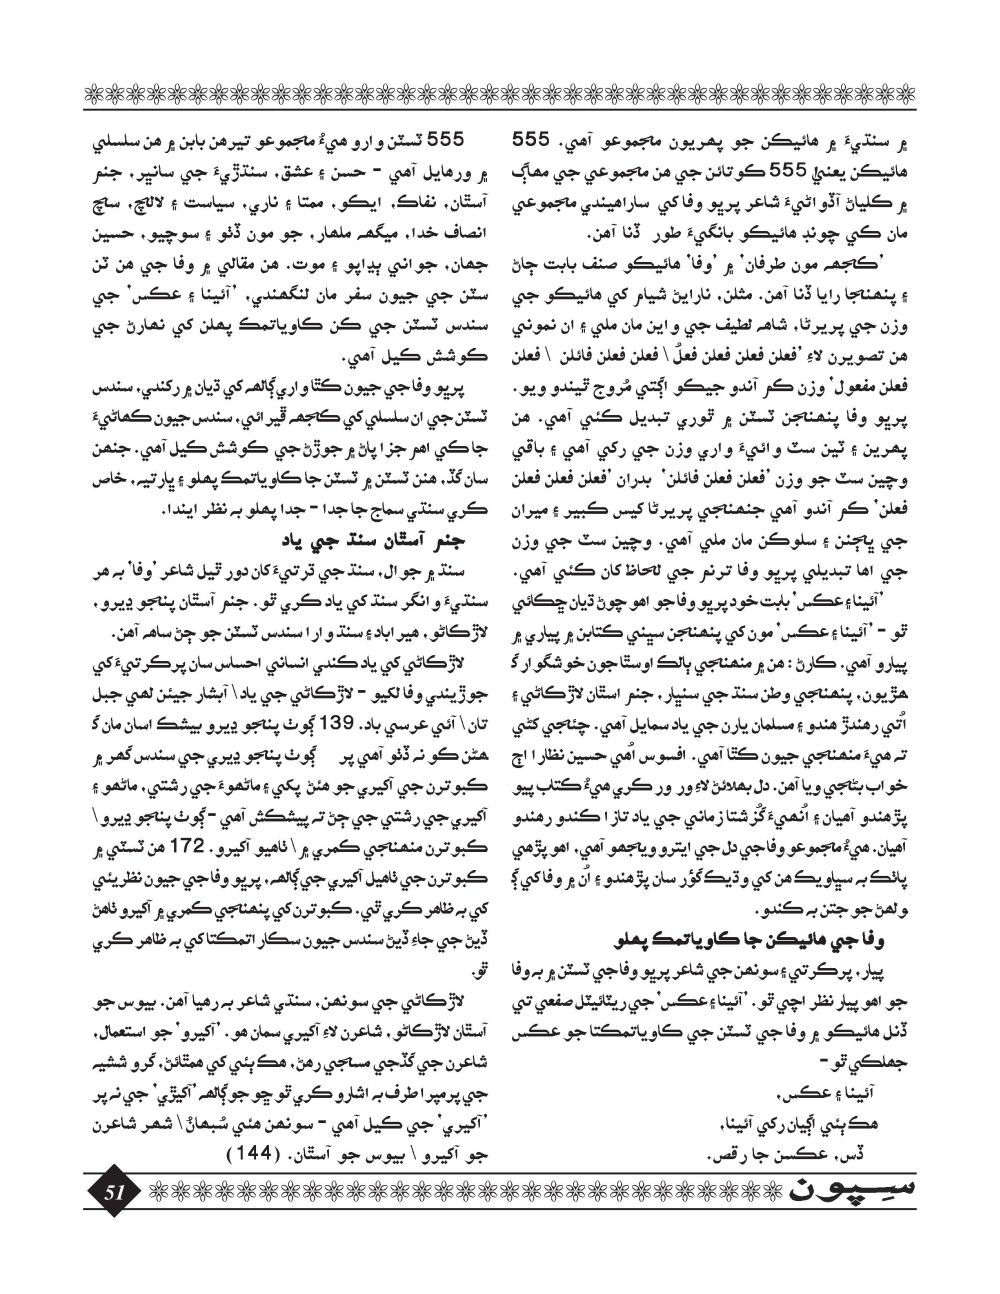 ۾ سنڌيءَ ۾ هائيڪن جو پھريون مجموعو آهي. 555
هائيڪن يعنيٰ 555 ڪوتائن جي هن مجموعي جي مهاڳ
۾ ڪلياڻ آڏواڻيءَ شاعر پرڀو وفا کي ساراهيندي مجموعي
مان ڪي چونڊ هائيڪو بانگيءَ طور ڏنا آهن.
’ڪجهہ مون طرفان‘ ۾ ’وفا‘ هائيڪو صنف بابت ڄاڻ
۽ پنھنجا رايا ڏنا آهن. مثلن، نارايڻ شيام کي هائيڪو جي
وزن جي پريرڻا، شاهہ لطيف جي وابن مان ملي ۽ ان نموني
هن تصويرن لاءِ ’فعلن فعلن فعلن فعلُ \ فعلن فعلن فائلن \ فعلن
فعلن مفعول‘ وزن ڪم آندو جيڪو اڳتي مُروج ٿيندو ويو.
پرڀو وفا پنھنجن ٽسٽن ۾ ٿوري تبديل ڪئي آهي. هن
پھرين ۽ ٽين سٽ وائيءَ واري وزن جي رکي آهي ۽ باقي
وچين سٽ جو وزن ’فعلن فعلن فائلن‘ بدران ’فعلن فعلن فعلن
فعلن‘ ڪم آندو آهي جنھنجي پريرڻا کيس ڪبير ۽ ميران
جي ڀڄنن ۽ سلوڪن مان ملي آهي. وچين سٽ جي وزن
جي اها تبديلي پرڀو وفا ترنم جي لحاظ کان ڪئي آهي.
’آئينا ۽ عڪس‘ بابت خود پرڀو وفا جو اهو چوڻ ڌيان ڇڪائي
ٿو - ’آئينا ۽ عڪس‘ مون کي پنھنجن سڀني ڪتابن ۾ پياري ۾
پيارو آهي. ڪارڻ: هن ۾ منھنجي ٻالڪ اوسٿا جون خوشگوار گ
هڙيون، پنھنجي وطن سنڌ جي سنڀار، جنم اسٿان لاڙڪاڻي ۽
اُتي رهندڙ هندو ۽ مسلمان يارن جي ياد سمايل آهي. چئجي کڻي
تہ هيءَ منھنجي جيون ڪٿا آهي. افسوس اُهي حسين نظارا اڄ
خواب بڻجي ويا آهن. دل بھلائڻ لاءِ ور ور ڪري هيءُ ڪتاب پيو
پڙهندو آهيان ۽ اُنھيءَ گُزشتا زماني جي ياد تازا ڪندو رهندو
آهيان. هيءُ مجموعو وفا جي دل جي ايترو ويجهو آهي، اهو پڙهي
پاٺڪ بہ سڀاويڪ هن کي وڌيڪ گؤر سان پڙهندو ۽ اُن ۾ وفا کي ڳ
ولھڻ جو جتن بہ ڪندو.
وفا جي هائيڪن جا ڪاوياتمڪ پھلو
پيار، پرڪرتي ۽ سونھن جي شاعر پرڀو وفا جي ٽسٽن ۾ بہ وفا
جو اهو پيار نظر اچي ٿو. ’آئينا ۽ عڪس‘ جي ريٽائيٽل صفحي تي
ڏنل هائيڪو ۾ وفا جي ٽسٽن جي ڪاوياتمڪتا جو عڪس
جھلڪي ٿو -
آئينا ۽ عڪس،
هڪٻئي اڳيان رکي آئينا،
ڏس، عڪسن جا رقص.
555 ٽسٽن وارو هيءُ مجموعو تيرهن بابن ۾ هن سلسلي
۾ ورهايل آهي - حسن ۽ عشق، سنڌڙيءَ جي سانڀر، جنم
آسٿان، نفاڪ، ايڪو، ممتا ۽ ناري، سياست ۽ لالچ، سچ
انصاف خدا، ميگهہ ملهار، جو مون ڏٺو ۽ سوچيو، حسين
جھان، جواني ٻڍاپو ۽ موت. هن مقالي ۾ وفا جي هن ٽن
سٽن جي جيون سفر مان لنگهندي، ’آئينا ۽ عڪس‘ جي
سندس ٽسٽن جي ڪن ڪاوياتمڪ پھلن کي نھارڻ جي
ڪوشش ڪيل آهي.
پرڀو وفا جي جيون ڪٿا واري ڳالھہ کي ڌيان ۾ رکندي، سندس
ٽسٽن جي ان سلسلي کي ڪجهہ ڦيرائي، سندس جيون ڪھاڻيءَ
جا ڪي اهم جزا پاڻ ۾ جوڙڻ جي ڪوشش ڪيل آهي. جنھن
سان گڏ، هنن ٽسٽن ۾ ٽسٽن جا ڪاوياتمڪ پھلو ۽ ڀارتيہ، خاص
ڪري سنڌي سماج جا جدا - جدا پھلو بہ نظر ايندا.
جنم آسٿان سنڌ جي ياد
سنڌ ۾ جوال، سنڌ جي ڌرتيءَ کان دور ٿيل شاعر ’وفا‘ بہ هر
سنڌيءَ وانگر سنڌ کي ياد ڪري ٿو. جنم آسٿان پنجو ديرو،
لاڙڪاڻو، هيراباد ۽ سنڌ وارا سندس ٽسٽن جو ڄڻ ساهہ آهن.
لاڙڪاڻي کي ياد ڪندي انساني احساس سان پرڪرتيءَ کي
جوڙيندي وفا لکيو - لاڙڪاڻي جي ياد \ آبشار جيئن لھي جبل
تان \ آئي عرسي باد. 139 ڳوٺ پنجو ديرو بيشڪ اسان مان گ
هڻن ڪو نہ ڏٺو آهي پر ڳوٺ پنجو ديري جي سندس گھر ۾
ڪبوترن جي آکيري جو هئڻ پکي ۽ ماڻھوءَ جي رشتي، ماڻھو ۽
آکيري جي رشتي جي ڄڻ تہ پيشڪش آهي - ڳوٺ پنجو ديرو \
ڪبوترن منھنجي ڪمري ۾ \ ٺاهيو آکيرو. 172 هن ٽسٽي ۾
ڪبوترن جي ٺاهيل آکيري جي ڳالھہ، پرڀو وفا جي جيون نظريئي
کي بہ ظاهر ڪري ٿي. ڪبوترن کي پنھنجي ڪمري ۾ آکيرو ٺاهڻ
ڏيڻ جي جاءِ ڏيڻ سندس جيون سڪاراتمڪتا کي بہ ظاهر ڪري
ٿو.
لاڙڪاڻي جي سونھن، سنڌي شاعر بہ رهيا آهن. بيوس جو
آسٿان لاڙڪاڻو، شاعرن لاءِ آکيري سمان هو. ’آکيرو‘ جو استعمال،
شاعرن جي گڏجي مسجي رهڻ، هڪٻئي کي همٿائڻ، گرو ششيہ
جي پرمپرا طرف بہ اشارو ڪري ٿو ڇو جو ڳالھہ ’آکيڙي‘ جي نہ پر
’آکيري‘ جي ڪيل آهي - سونھن هئي سُبھانُ \ شھر شاعرن
جو آکيرو \ بيوس جو آسٿان. (144)
سِپون
51